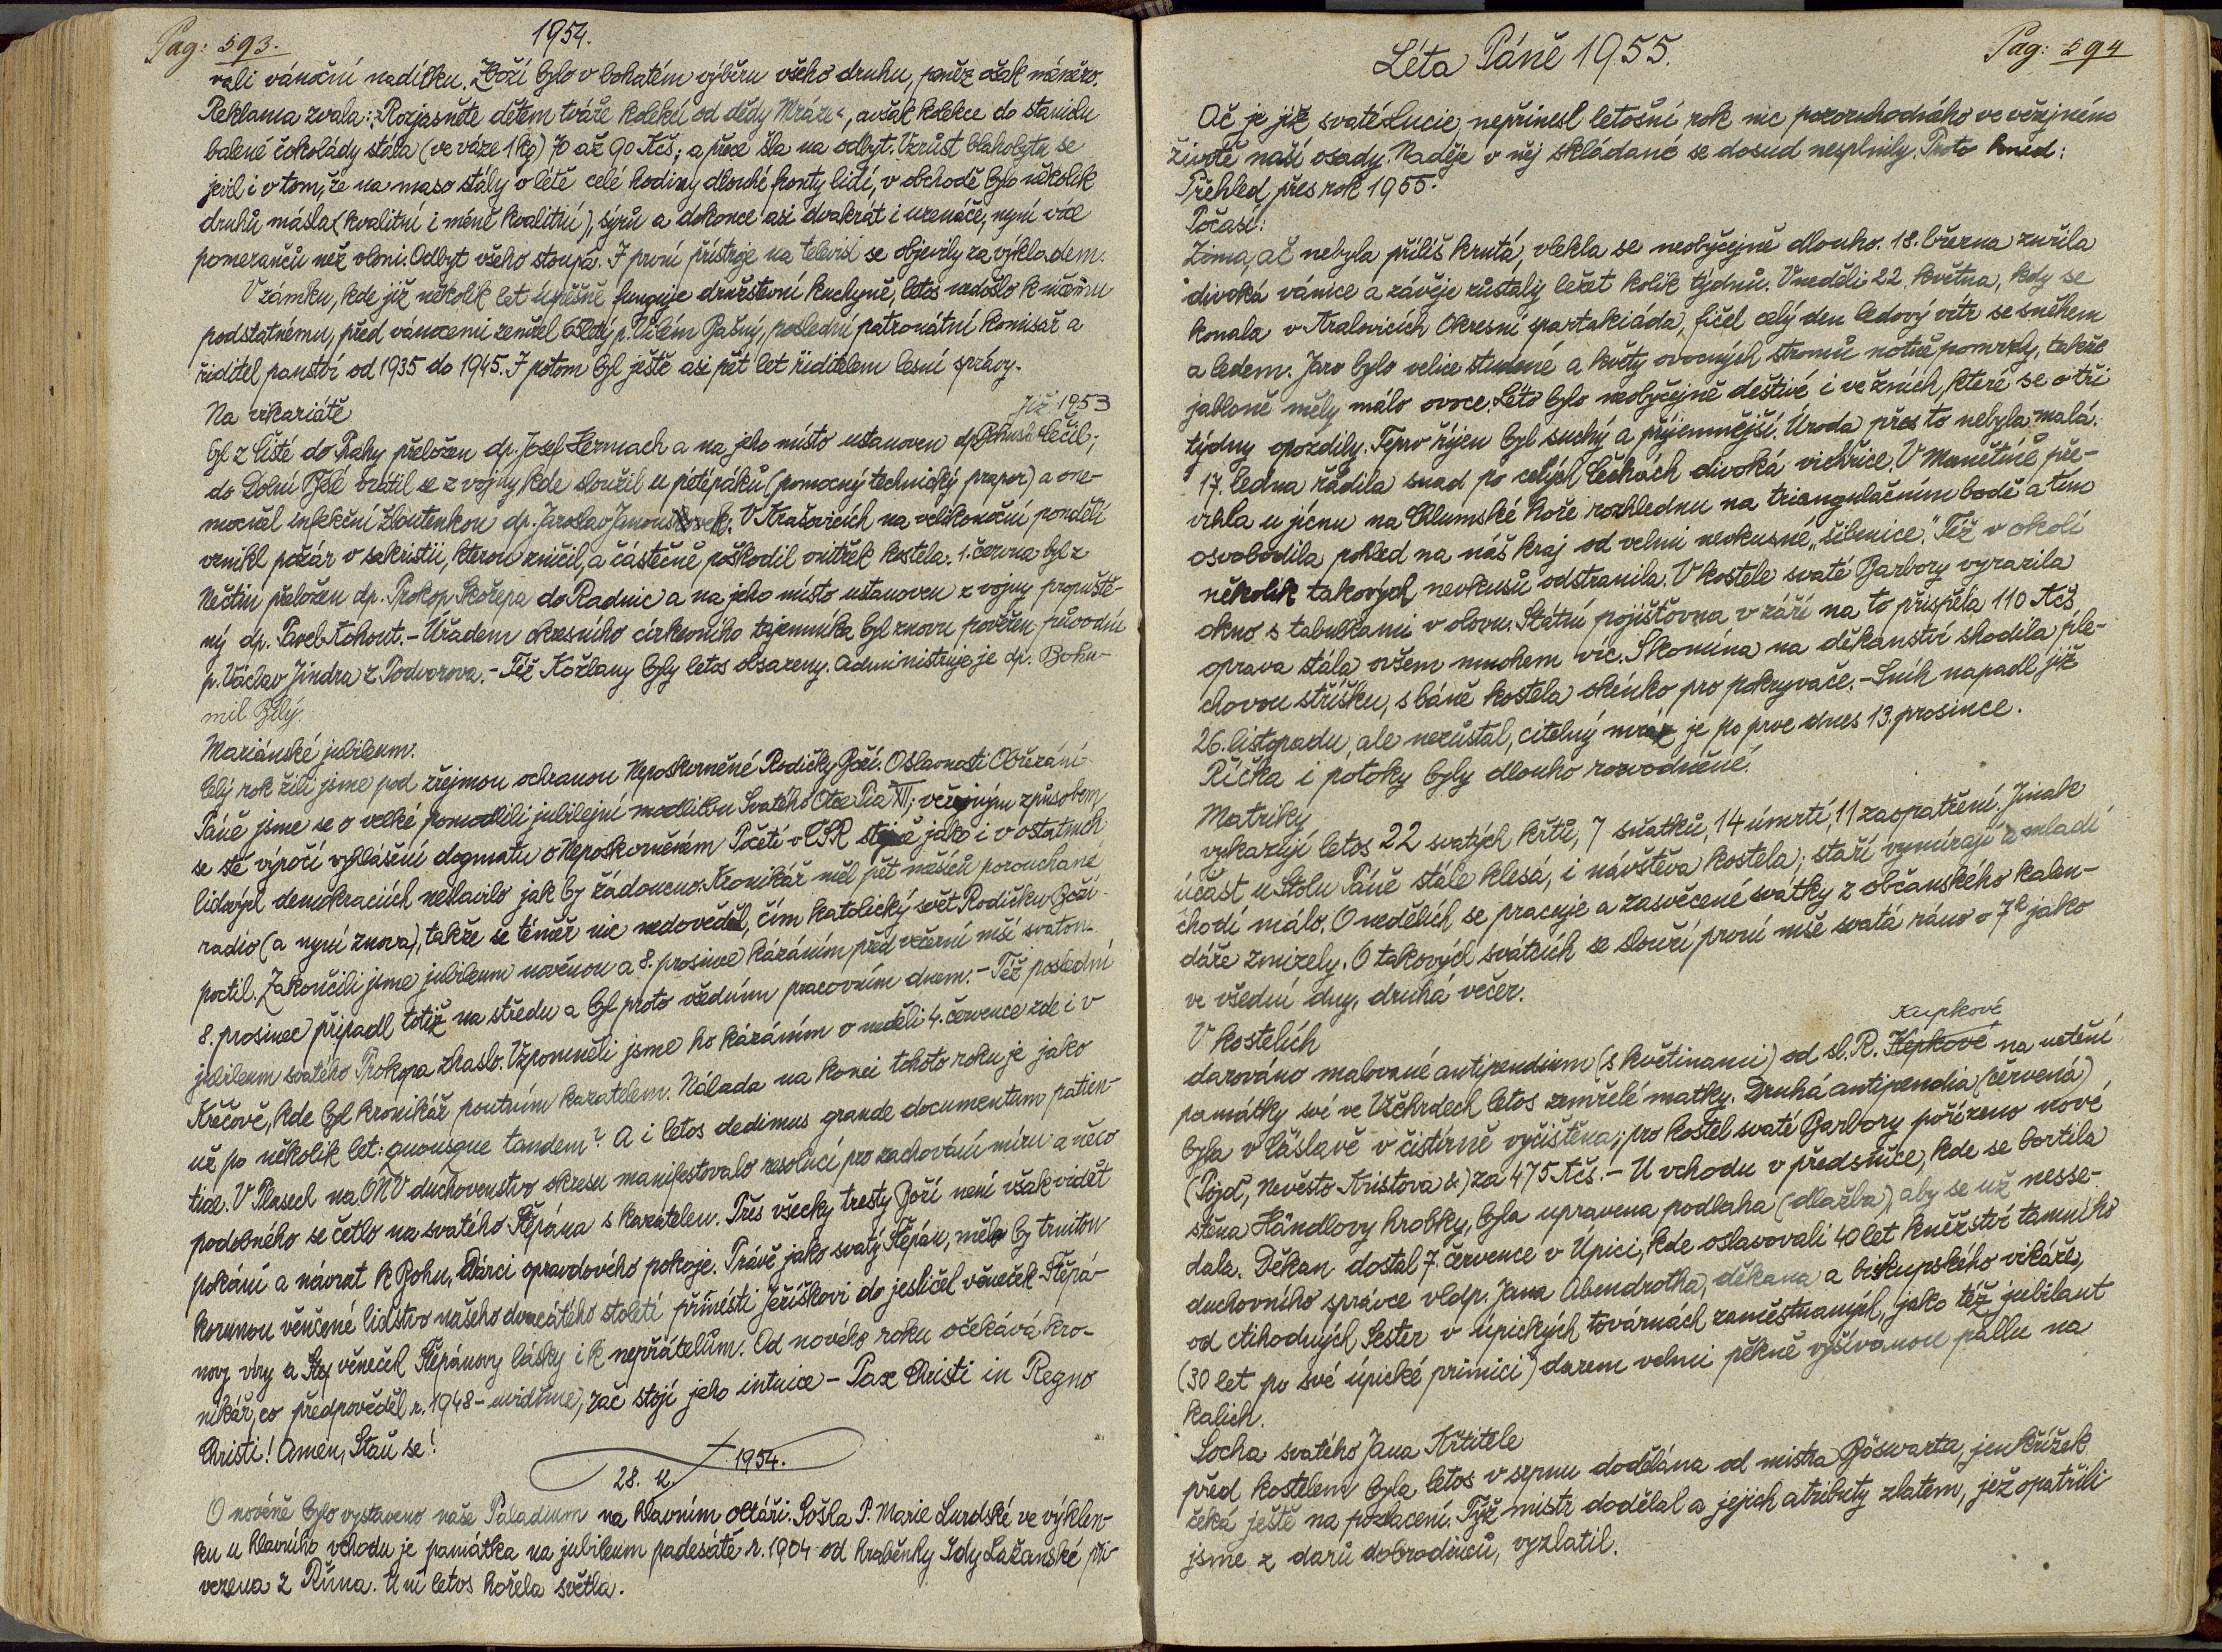 Pag: 593.
1954.
vali vánoční nadílku. Zboží bylo v bohatém výběru všeho druhu, peněz však méněro.
Reklama zvala: „Rozjasněte dětem tváře kolekcí od dědy Mráze“, avšak kolekce do staniolu
balené čokolády stála (ve váze 1 kg) 70 až 90 Kčs; a přece šla na odbyt. Vzrůst blahobytu se
jevil i v tom, že na maso stály v létě celé hodiny dlouhé fronty lidí, v obchodě bylo několik
druhů másla (kvalitní i méně kvalitní), sýrů a dokonce asi dvakrát i uzenáče, nyní více
pomerančů než vloni. Odbyt všeho stoupá. I první přístroje na televisi se objevily za výkladem.
V zámku, kde již několik let úspěšně funguje družstevní kuchyně, letos nedošlo k ničemu
podstatnému, před vánocemi zemřel p. Vilém Bašný, poslední patronátní komisař a
řiditel panství od 1935 do 1945. I potom byl ještě asi pět let řiditelem lesní správy.
Na vikariátě
již 1953
byl z Čisté do Prahy přeložen dp. Josef Hermach a na jeho místo ustanoven dp. Bohusl. Čečil;
do Dolní Bělé vrátil se z vojny, kde sloužil u pétépáků (pomocný technický prapor) a one-
mocněl infekční žloutenkou dp. Jaroslav Janouškovek. V Krašovicích na velikonoční pondělí
vznikl požár v sakristii, kterou zničil, a částečně poškodil vnitřek kostela. 1. června byl z
Nečtin přeložen dp. Prokop Skořepa do Radnic a na jeho místo ustanoven z vojny propuště-
ný dp. Pavel Kohout. - Úřadem okresního církevního tajemníka byl znovu pověřen původní
p. Václav Jindra z Potvorova. - Též Kožlany byly letos obsazeny. Administruje je dp. Bohu-
mil Bílý.
Mariánské jubileum.
Celý rok žili jsme pod zřejmou ochranou Neposkvrněné Rodičky Boží. O slavnosti Obřezání
Páně jsme se o velké pomodlili jubilejní modlitbu Svatého Otce Pia XII; veřejným způsobem
se sté výročí vyhlášení dogmatu o Neposkvrněném Početí v ČSR stejně jako i v ostatních
lidových demokraciích neslavilo jak by žádoucno. Kronikář měl pět měsíců porouchané
radio (a nyní znova), takže se téměř nic nedověděl, čím katolický svět Rodičku Boží
poctil. Zakončili jsme jubileum novénou a 8. prosince kázáním před večerní mší svatou.
8. prosinec připadl totiž na středu a byl proto všedním pracovním dnem. - Též poslední
jubileum svatého Prokopa zhaslo. Vzpomněli jsme ho kázáním o neděli 4. července zde i v
Křečově, kde byl kronikář poutním kazatelem. Nálada na konci tohoto roku je jako
už po několik let: quousque tandem? A i letos dedimus grande documentum patien-
tiae. V Plasech na ONV duchovenstvo okresu manifestovalo resolucí pro zachování míru a něco
podobného se četlo na svatého Štěpána s kazatelen. Přes všecky tresty Boží není však vidět
pokání a návrat k Bohu, Dárci opravdového pokoje. Právě jako svatý Štěpán, mělo by trnitou
korunou věnčené lidstvo našeho dvacátého století přinésti Ježíškovi do jesliček věneček Štěpá-
novy víry a věneček Štěpánovy lásky i k nepřátelům. Od nového roku očekává kro-
nikář, co předpověděl r. 1948 - uvidíme, zač stojí jeho intuice - Pax Christi in Regno
Christi! Amen, Staň se!
28. 12. 1954.
O novéně bylo vystaveno naše Paladium na hlavním oltáři. Soška P. Marie Lurdské ve výklen-
ku u hlavního vchodu je památka na jubileum padesáté r. 1904 od hraběnky Idy Lažanské při-
vezena z Říma. U ní letos hořela světla.
Pag: 594
Léta Páně 1955.
Ač je již svaté Lucie, nepřinesl letošní rok nic pozoruhodného ve veřejném
životě naší osady. Naděje v něj skládané se dosud nesplnily. Proto hned:
Přehled přes rok 1955.
Počasí:
Zima, ač nebyla příliš krutá, vlekla se neobyčejně dlouho. 18. března zuřila
divoká vánice a závěje zůstaly ležet kolik týdnů. V neděli 22. května, kdy se
konala v Kralovicích Okresní spartakiáda, fičel celý den ledový vítr se sněhem
a ledem. Jaro bylo velice studené a květy ovocných stromů notně pomrzly, takže
jabloně měly málo ovoce. Léto bylo neobyčejně deštivé i ve žních, které se o tři
týdny opozdily. Teprv říjen byl suchý a příjemnější. Úroda přes to nebyla malá.
17. ledna řádila snad po celých Čechách divoká vichřice. V Manětíně pře-
vrhla u jícnu na Chlumské hoře rozhlednu na triangulačním bodě a tím
osvobodila pohled na náš kraj od velmi nevkusné „šibenice.“ Též v okolí
několik takových nevkusů odstranila. V kostele svaté Barbory vyrazila
okno s tabulkami v olovu. Státní pojišťovna v září na to přispěla 110 Kčs
oprava stála ovšem mnohem víc. S komína na děkanství shodila ple-
chovou stříšku, s báně kostela okénko pro pokryvače. - Sníh napadl již
26. listopadu, ale nezůstal, citelný mráz je po prve dnes 13. prosince.
Říčka i potoky byly dlouho rozvodněné.
Matriky
vykazují letos 22 svatých křtů, 7 sňatků, 14 úmrtí, 11 zaopatření. Jinak
účast u Stolu Páně stále klesá, i návštěva kostela; staří vymírají a mladí
chodí málo. O nedělích se pracuje a zasvěcené svátky z občanského kalen-
dáře zmizely. O takových svátcích se slouží první mše svatá ráno o 7h jako
ve všední dny, druhá večer.
V kostelích
Kupkové
darováno malované antipendium (s květinami) od sl. R. Hepkové na uctění
památky své ve Všehrdech letos zemřelé matky. Druhá antipendia (červená)
byla v Čáslavě v čistírně vyčištěna; pro kostel svaté Barbory pořízeno nové
(Pojď, Nevěsto Kristova &) za 475 Kčs. - U vchodu v předsíňce, kde se bortila
stěna Händlovy hrobky, byla upravena podlaha (dlažba), aby se už nesse-
dala. Děkan dostal 7. července v Úpici, kde oslavovali 40 let kněžství tamního
duchovního správce vldp. Jana Abendrotha, děkana a biskupského vikáře,
od ctihodných Sester v úpických továrnách zaměstnaných, jako též jubilant
(30 let po své úpické primici) darem velmi pěkně vyšívanou pallu na
kalich.
Socha svatého Jana Křtitele
před kostelem byla letos v srpnu dodělána od mistra Böswarta, jen křížek
čeká ještě na pozlacení. Týž mistr dodělal a jejich atributy zlatem, jež opatřili
jsme z darů dobrodinců, vyzlatil.